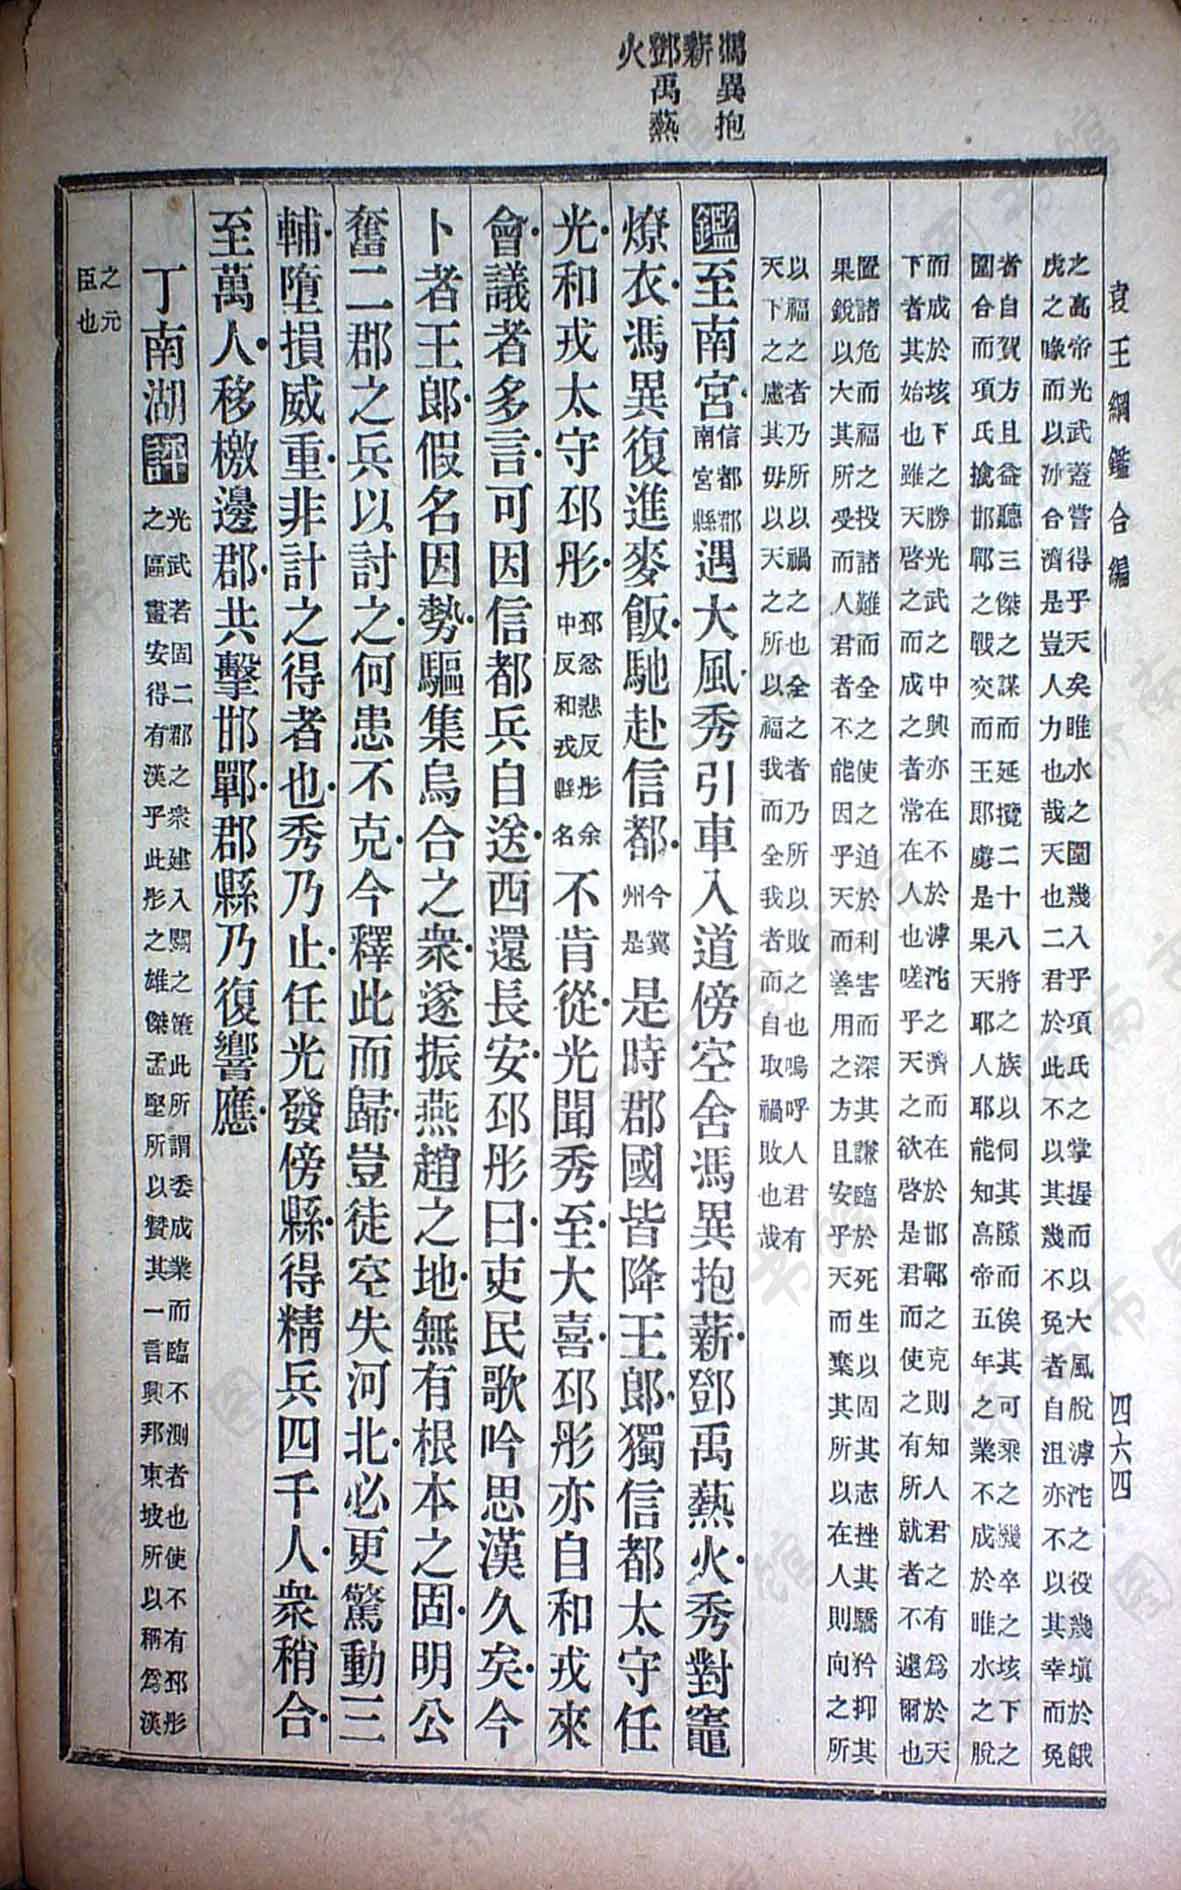 馮異抱
薪
鄧禹爇
火
袁王綱鑑合編　四六四
之高帝光武蓋嘗得乎天矣睢水之圍幾入乎項氏之掌握而以大風脫滹沱之役幾塡於餓
虎之喙而以冰合濟是豈人力也哉天也二君於此不以其幾不免者自沮亦不以其幸而免
者自賀方且益聽三傑之謀而延攬二十八將之族以伺其隙而俟其可乘之機卒之垓下之
圍合而項氏擒邯鄲之戰交而王郎虜是果天耶人耶能知高帝五年之業不成於睢水之脫
而成於垓下之勝光武之中興亦在不於滹沱之濟而在於邯鄲之克則知人君之有爲於天
下者其始也雖天啓之而成之者常在人也嗟乎天之欲啓是君而使之有所就者不遽爾也
置諸危而福之投諸難而全之使之迫於利害而深其謙臨於死生以固其志挫其驕矜抑其
果銳以大其所受而人君者不能因乎天而善用之方且安乎天而棄其所以在人則向之所
以福之者乃所以禍之也全之者乃所以敗之也嗚呼人君有
天下之慮其毋以天之所以福我而全我者而自取禍敗也哉
鑑至南宮信都郡南宮縣遇大風秀引車入道傍空舍馮異抱薪鄧禹爇火秀對竈
燎衣馮異復進麥飯馳赴信都今冀州是是時郡國皆降王郎獨信都太守任
光和戎太守邳彤邳忿悲反彤余中反和戎縣名不肯從光聞秀至大喜邳彤亦自和戎來
會議者多言可因信都兵自送西還長安邳彤曰吏民歌吟思漢久矣今
卜者王郎假名因勢驅集烏合之衆遂振燕趙之地無有根本之固明公
奮二郡之兵以討之何患不克今釋此而歸豈徒空失河北必更驚動三
輔墮損威重非計之得者也秀乃止任光發傍縣得精兵四千人衆稍合
至萬人移檄邊郡共擊邯鄲郡縣乃復響應
丁南湖評光武若固二郡之衆建入關之策此所謂委成業而臨不測者也使不有邳彤
之區畫安得有漢乎此彤之雄傑孟堅所以贊其一言興邦東坡所以稱爲漢
之元
臣也